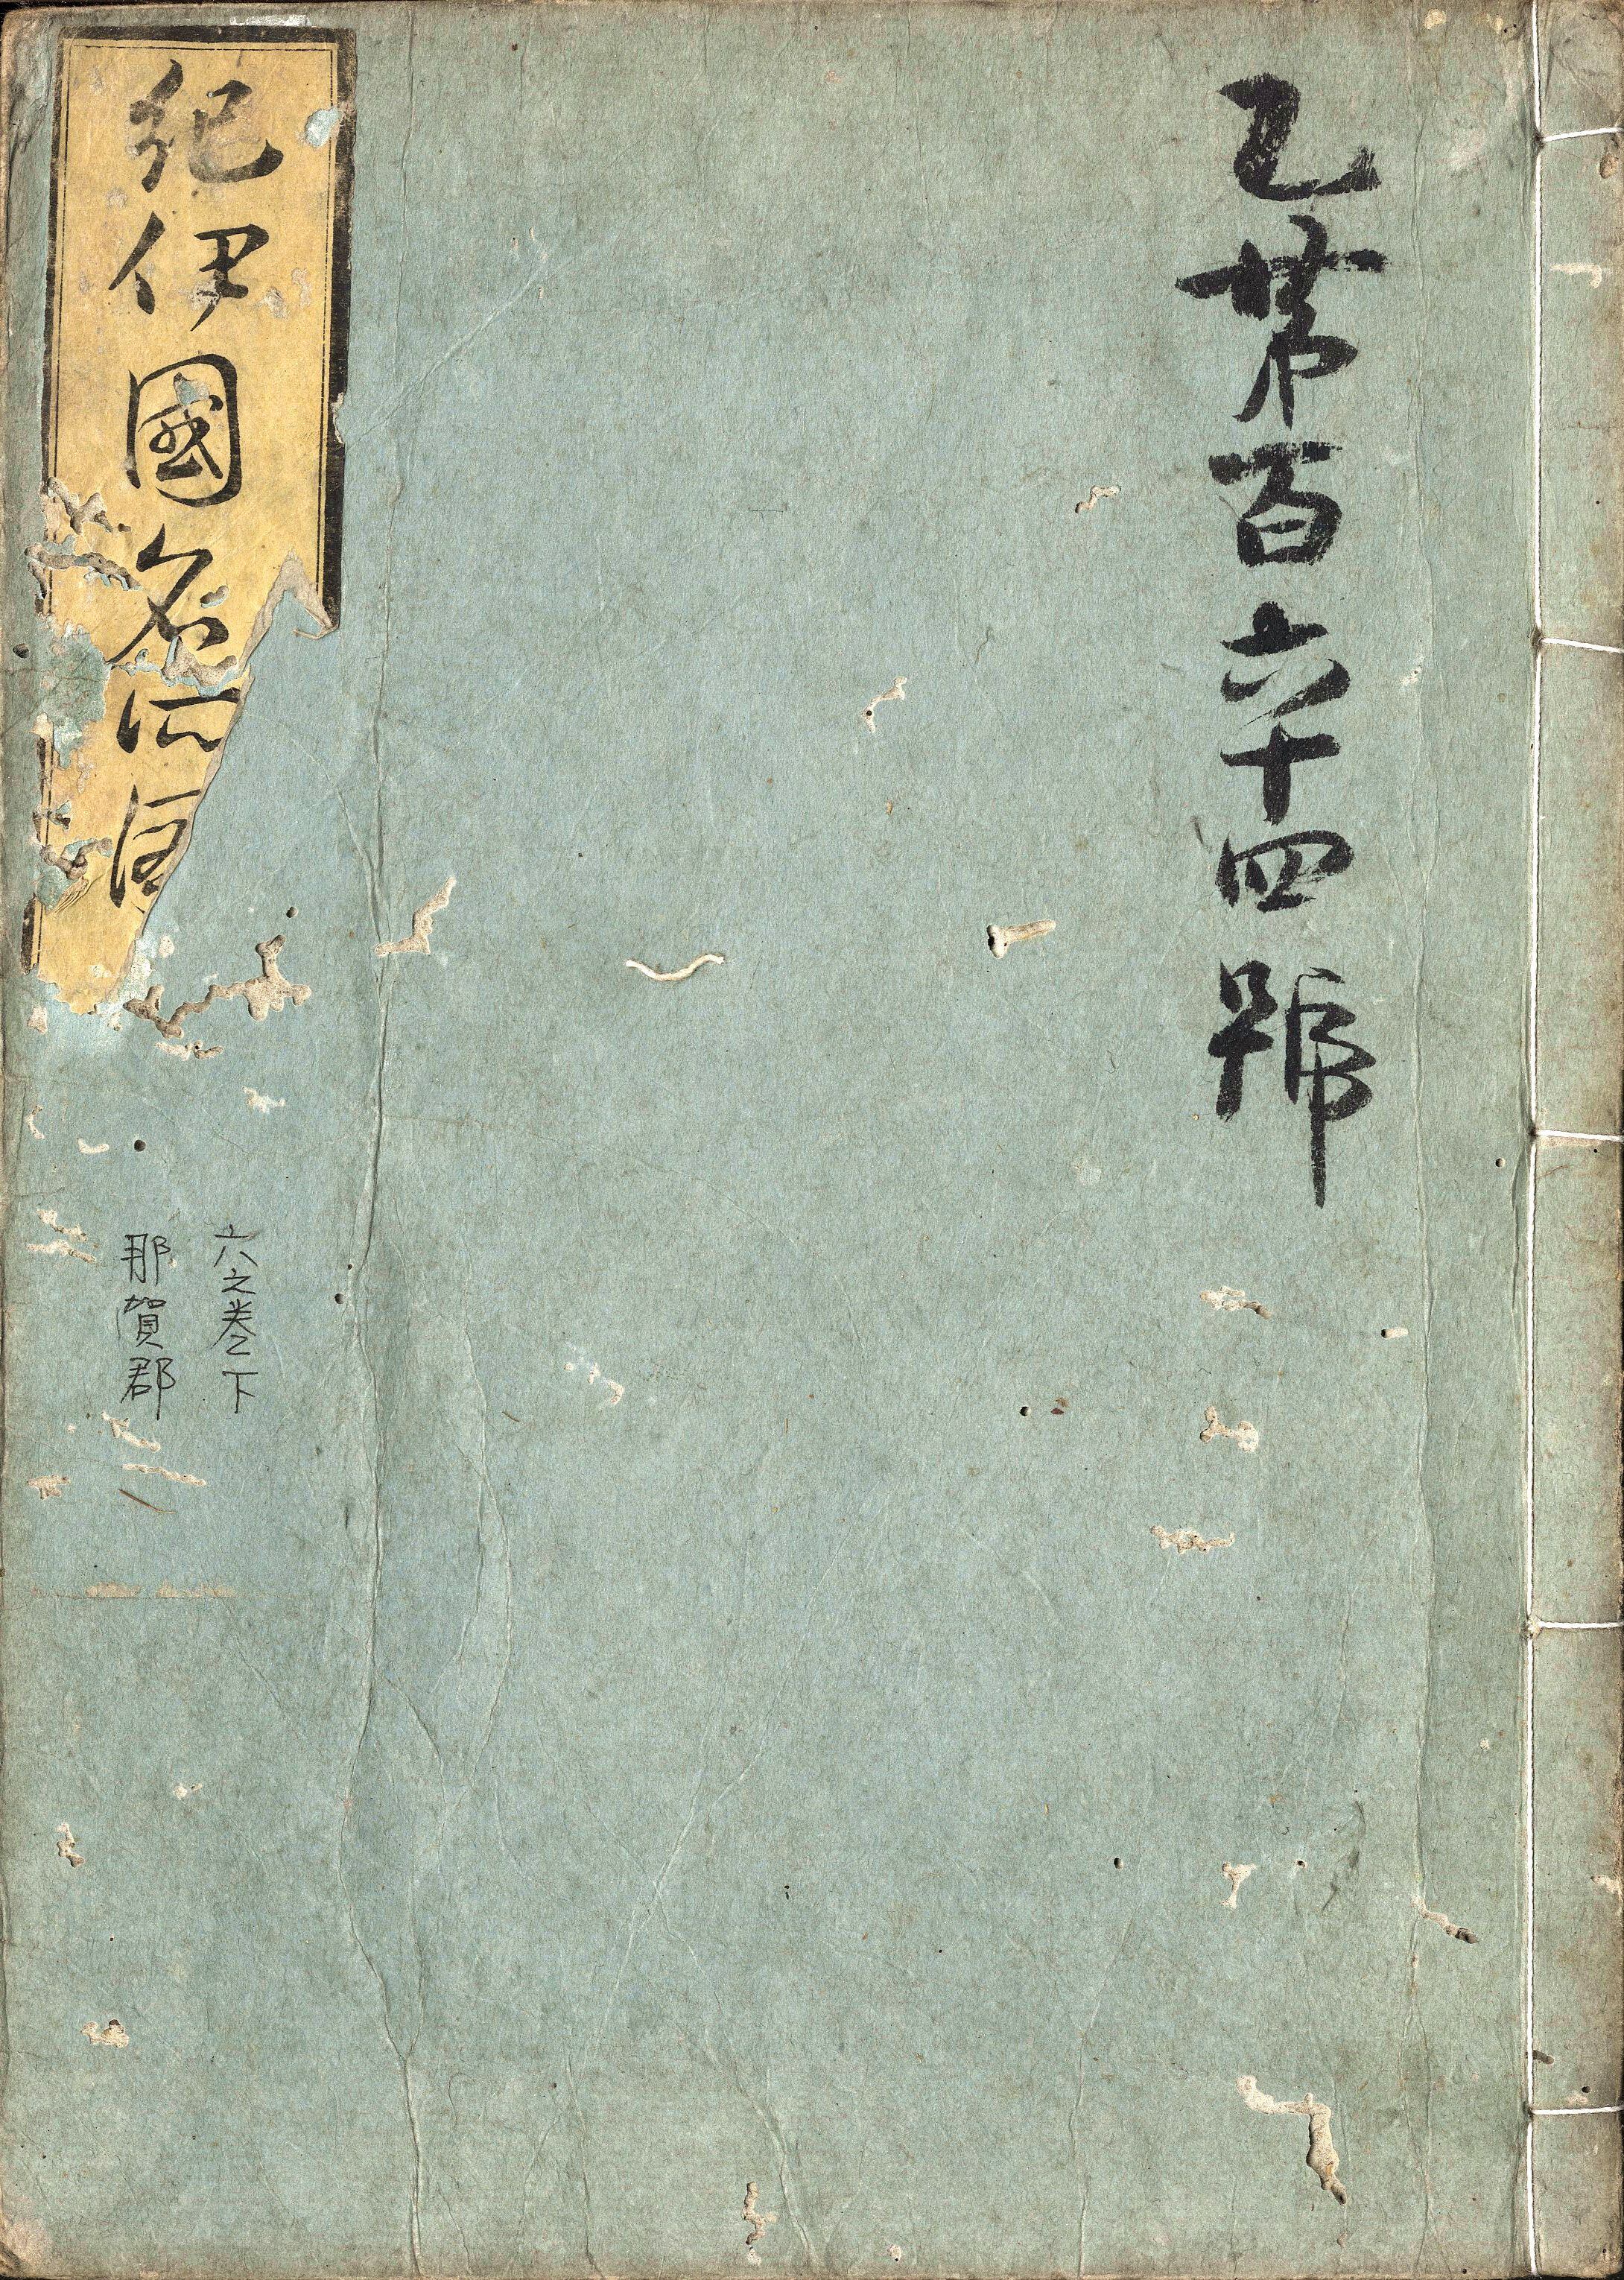 乙第百六十四號
紀伊國名所圖
六之巻下
那賀郡